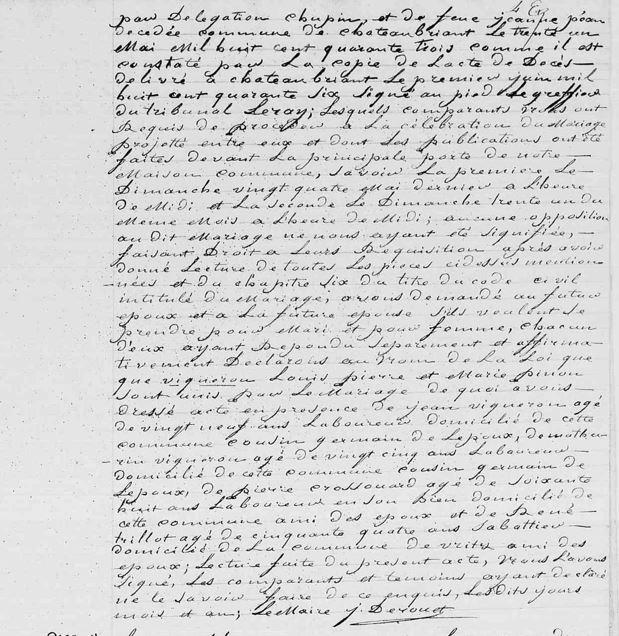 par Délégation chupin, et de feue jeanne péan
decedée commune de chateaubriant Le trente un
Mai Mil huit cent quarante trois comme il est
constaté par La copie de Lacte de Décès
délivré a chateaubriant Le premier juin mil
huit cent quarante six signé au pied Le greffier
du tribunal Leray; Lesquels comparants nous ont
Requis de procéder a La célébration du Mariage
projetté entre eux et dont Les publications ont été
faites devant La principale porte de notre
Maison commune, savoir La premiere Le
Dimanche vingt quatre Mai dernier a Lheure
de Midi et La seconde Le Dimanche trente un du
Même Mois a Lheure de Midi; aucune opposition
au dit Mariage ne nous ayant été signifiée,
faisant Droit a Leurs Requisition après avoir
donné Lecture de toutes Les pieces cidessus mention
nées et du chapitre six du titre du code civil
intitulé du Mariage, avons demandé au futur
epoux et a La future epouse S'ils veulent se
prendre pour Mari et pour femme, chacun
d'eux ayant Repondu separement et affirma
tivement Déclarons au Nom de La Loi que
que vigneron Louis pierre et Marie pinon
sont unis par Le Mariage de quoi avons
dressé acte en presence de jean vigneron agé
de vingt neuf ans Laboureur domicilié de cette
commune cousin germain de Lepoux, de mathu
rin vigneron agé de vingt cinq ans Laboureur
domicilié de cette commune cousin germain de
Lepoux, de pierre crossouard agé de soixante
huit ans Laboureur en son bien domicilié de
cette commune ami des epoux et de René
trillot agé de cinquante quatre ans sabottier
domicilié de La commune de vritz ami des
epoux; Lecture faite du present acte, Nous Lavons
signé, Les comparants et temoins ayant declaré
ne le savoir faire de ce enquis, Lesdits jours
mois et an; Le Maire j. Derouet